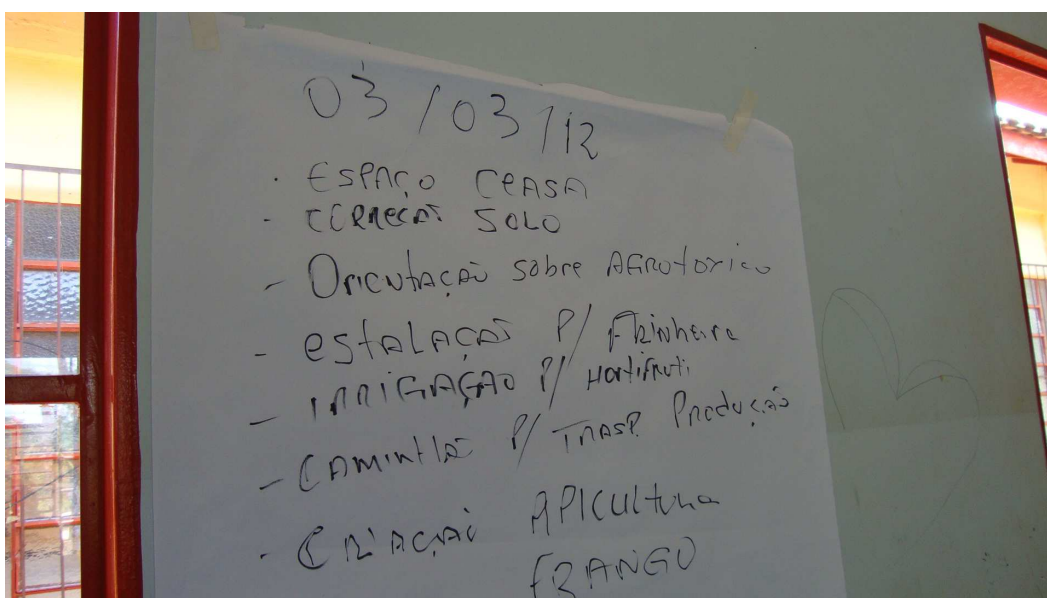 03/03/12
· ESPAÇO CEASA
- CORREÇÃO SOLO
- Orientação sobre AGROtoxico
- estALAÇÃO P/ FARinheira
- IRRIGAÇÃO P/ Hortifruti
- CAMINHÃO P/ TRASP. Produção
· CRIAÇÃO APICultura
FRANGO